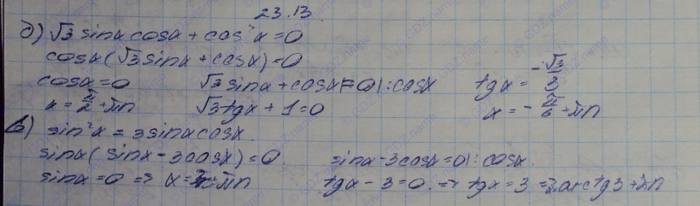 23.13.
д) √3 sinx cosx + cos²x = 0
cosx(√3 sinx + cosx) = 0
cosx = 0 √3 sinx + cosx = 0 | : cosx tgx = -√3/3
x = π/2 + πn √3 tgx + 1 = 0 x = -π/6 + πn
sin²x = 3 sinx cosx.
sinx(sinx - 3cosx) = 0. sinx - 3cosx = 0 | : cosx.
sinx = 0 => x = πn tgx - 3 = 0. => tgx = 3 => arctg3 + πn